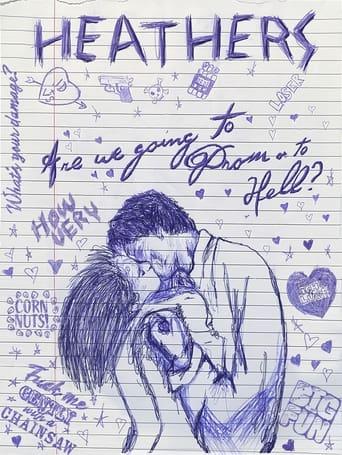 HEATHERS
What's your damage?
Are we going to
Prom or to
Hell?
HOW
VERY
CORN
NUTS!
Fuck me
GENTLY
with a
CHAINSAW
BIG
FUN